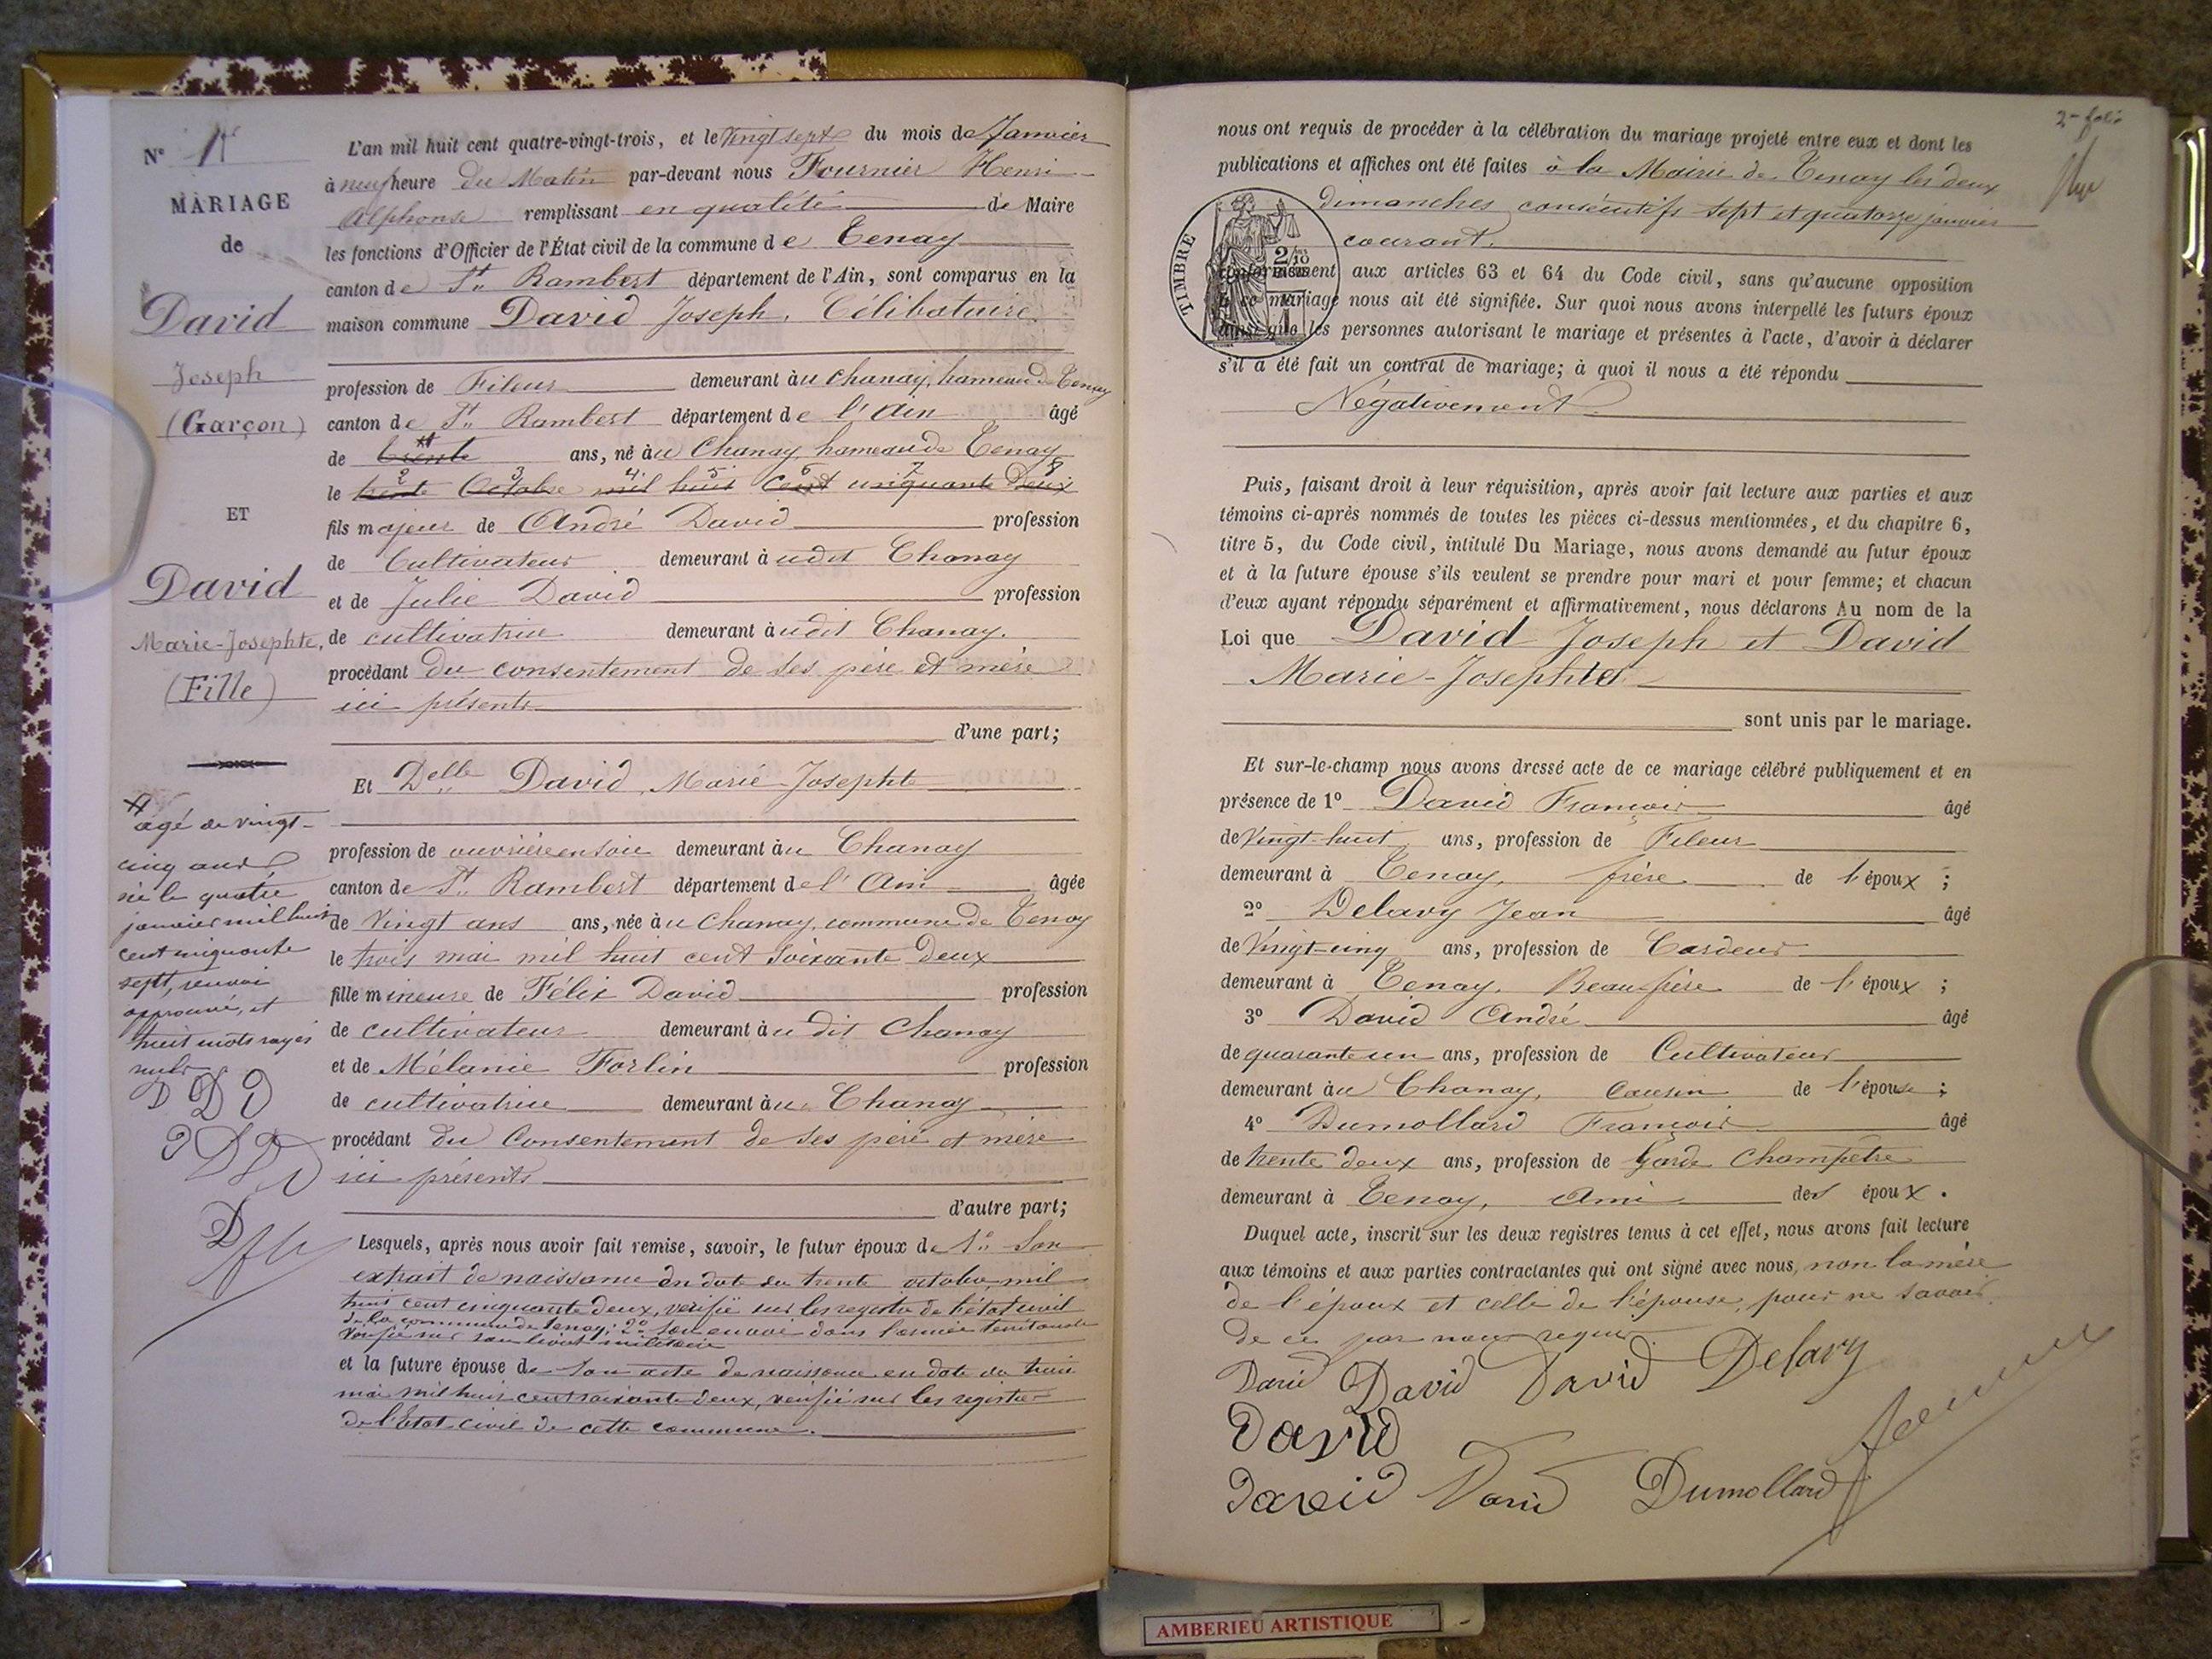 N° 1
MARIAGE
de
David
Joseph
(Garçon)
ET
David
Marie-Josephte,
(Fille)
âgé de vingt-
cinq ans
né le quatre
janvier mil huit
cent cinquante
sept, renvoi
approuvé, et
huit mots rayés
nuls
D D D
L'an mil huit cent quatre-vingt-trois, et le Vingt sept du mois de Janvier
à neuf heure du Matin par-devant nous Fournier Henri
Alphonse remplissant en qualité de Maire
les fonctions d'Officier de l'État civil de la commune de Tenay
canton de St Rambert département de l'Ain, sont comparus en la
maison commune David Joseph, Célibataire
profession de Fileur demeurant àu Chanay, hameau de Tenay
canton de St Rambert département de l'Ain âgé
de trente ans, né àu Chanay, hameau de Tenay
2 3 4 5 6 7 8
le trente Octobre mil huit Cent cinquante Deux
fils majeur de André David profession
de Cultivateur demeurant à udit Chanay
et de Julie David profession
de cultivatrice demeurant à udit Chanay.
procédant du consentement de ses père et mère
ici présents
d'une part;
Et Delle David, Marie-Josephte
profession de ouvrière en soie demeurant àu Chanay
canton de St Rambert département de l'Ain âgée
de Vingt ans ans, née àu Chanay, commune de Tenay
le trois mai mil huit cent soixante Deux
fille mineure de Félix David profession
de cultivateur demeurant àu dit Chanay
et de Mélanie Forlin profession
de cultivatrice demeurant àu Chanay
procédant du Consentement de ses père et mère
ici présents
d'autre part;
Lesquels, après nous avoir fait remise, savoir, le futur époux de 1° Son
extrait de naissance en date du trente octobre mil
huit cent cinquante deux, vérifié sur les registres de l'état civil
de la commune de Tenay; 2° son envoi dans l'armée territoriale
vérifié sur son livret militaire
et la future épouse de son acte de naissance en date du trois
mai mil huit cent soixante deux, vérifié sur les registres
de l'Etat civil de cette commune.
2e folio
nous ont requis de procéder à la célébration du mariage projeté entre eux et dont les
publications et affiches ont été faites à la Mairie de Tenay les deux
dimanches consécutifs sept et quatorze janvier
courant.
TIMBRE
conformément aux articles 63 et 64 du Code civil, sans qu'aucune opposition
à ce mariage nous ait été signifiée. Sur quoi nous avons interpellé les futurs époux
ainsi que les personnes autorisant le mariage et présentes à l'acte, d'avoir à déclarer
s'il a été fait un contrat de mariage; à quoi il nous a été répondu
Négativement
Puis, faisant droit à leur réquisition, après avoir fait lecture aux parties et aux
témoins ci-après nommés de toutes les pièces ci-dessus mentionnées, et du chapitre 6,
titre 5, du Code civil, intitulé Du Mariage, nous avons demandé au futur époux
et à la future épouse s'ils veulent se prendre pour mari et pour femme; et chacun
d'eux ayant répondu séparément et affirmativement, nous déclarons Au nom de la
Loi que David Joseph et David
Marie-Josephte
sont unis par le mariage.
Et sur-le-champ nous avons dressé acte de ce mariage célébré publiquement et en
présence de 1° David François âgé
de Vingt-huit ans, profession de Fileur
demeurant à Tenay, frère de l'époux ;
2° Delavy Jean âgé
de Vingt-cinq ans, profession de Cardeur
demeurant à Tenay, Beau-frère de l'époux ;
3° David André âgé
de quarante un ans, profession de Cultivateur
demeurant àu Chanay, cousin de l'épouse ;
4° Dumollard François âgé
de trente deux ans, profession de Garde Champêtre
demeurant à Tenay, Ami des époux.
Duquel acte, inscrit sur les deux registres tenus à cet effet, nous avons fait lecture
aux témoins et aux parties contractantes qui ont signé avec nous, non la mère
de l'époux et celle de l'épouse, pour ne savoir
de ce par nous requis
David David David Delavy
David
David David Dumollard
AMBERIEU ARTISTIQUE